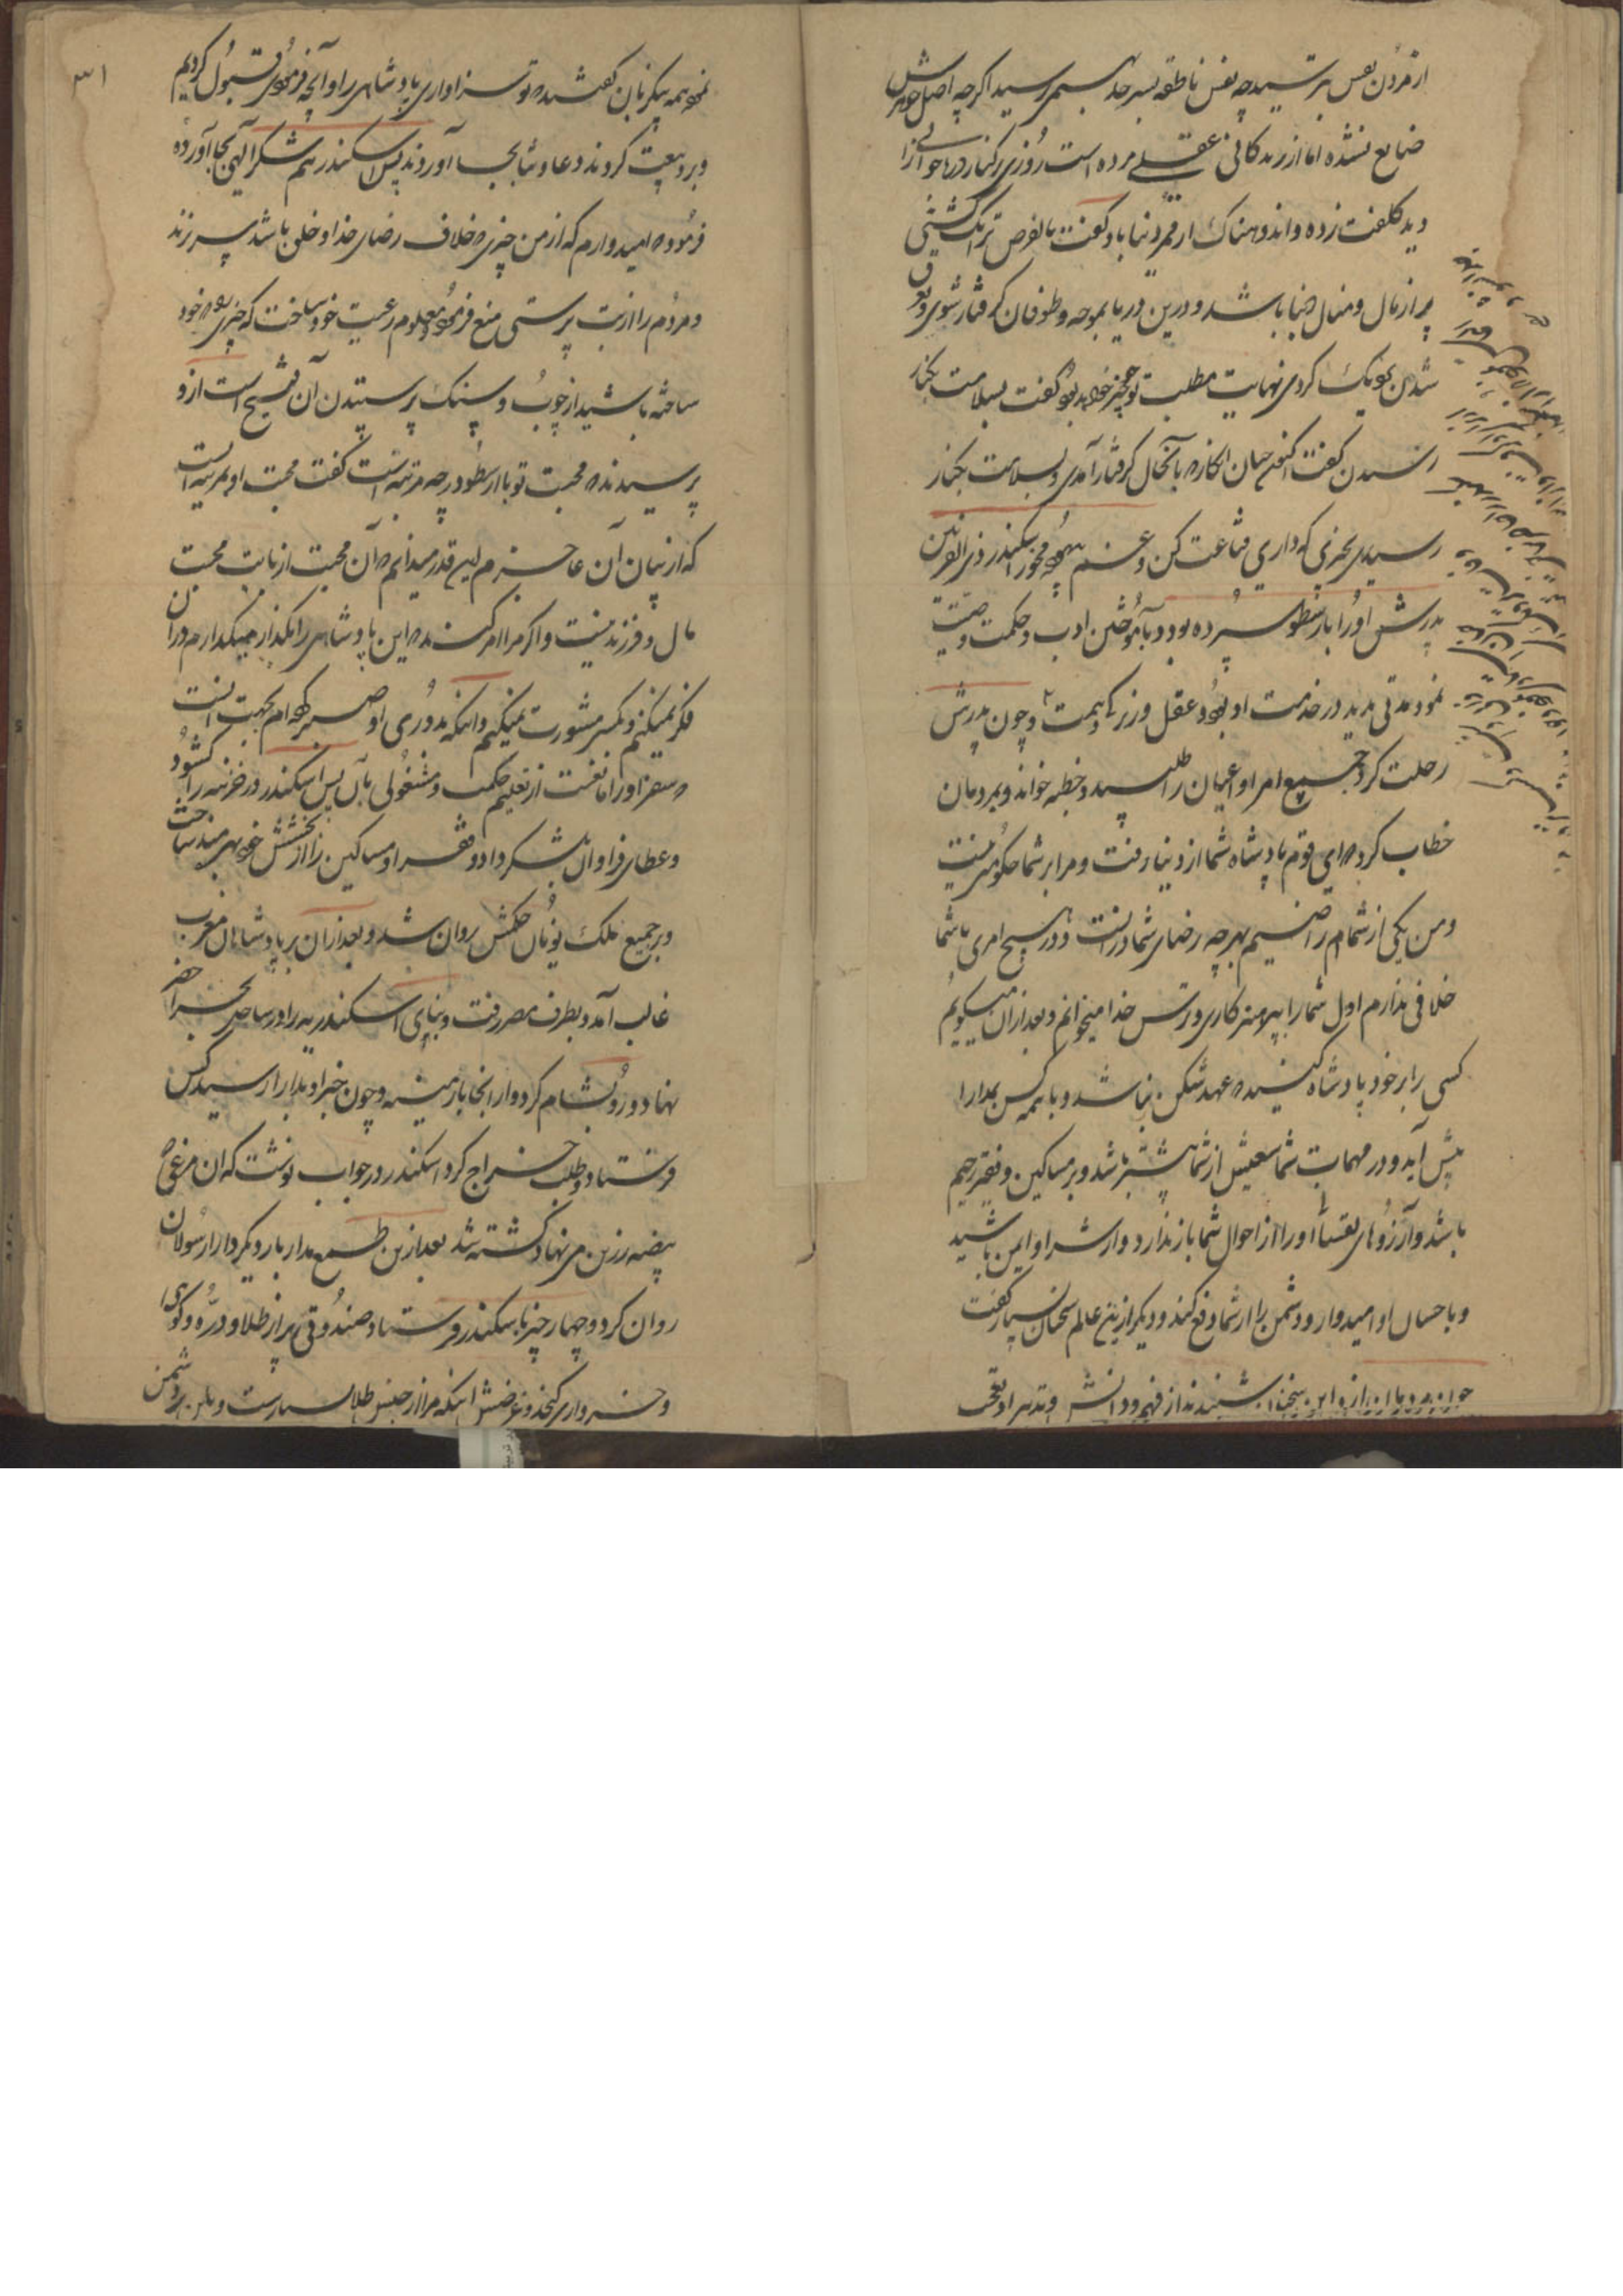 از مردن نفس بترسید چه نفس ناطقه بسر حد بسمی رسید اکرچه اصل جوهرش
ضایع نشده اما از زندکانی عقلی مرده است روزی بر کنار دریا جوانی را
دید کلفت زده و اندوهناک از غم دنیا باو کفت بالفرض ترا یک کشتی
پر از مال و منال دنیا باشد و درین دریا بموجه و طوفان کرفتار شوی و بغرق
شدن نزدیک کردی نهایت مطلب تو چه چیز خواهد بود کفت بسلامت بکنار
رسیدن کفت اکنون همان انکار که بآنحال کرفتار آمدی و بسلامت بکنار
رسیدی بچیزی که داری قناعت کن و غم بیهوده مخور اسکندر ذی القرنین
پدرش او را بارسطو سپرده بود و بآموختن ادب و حکمت وصیت
نمود مدتی مدید در خدمت او بود و عقل و زیرکی و همت و چون پدرش
رحلت کرد جمیع امرا و اعیان را طلبید و خطبه خواند و بمردمان
خطاب کرد که ای قوم پادشاه شما از دنیا رفت و مرا بر شما حکومتی نیست
و من یکی از شمایم راضیم بهرچه رضای شما در انست و در هیچ امری با شما
خلافی ندارم اول شما را بپرهیزکاری و ترس خدا میخوانم و بعد ازان میکویم
کسی را بر خود پادشاه کنید که عهد شکن نباشد و با همه کس بمدارا
پیش آید و در مهمات شما سعیش از شما بیشتر باشد و بر مساکین و فقیر رحیم
باشد و آرزوهای نفسانی او را از احوال شما باز ندارد و از شر او ایمن باشید
و باحسان او امیدوار و دشمن را از شما دفع کند و دیکر ازین عالم سخنان بسیار کفت
چون مردمان ازو این سخنان شنیدند از فهم و دانش و تدبیر او تعجب
۳۱
نموده همه یکزبان کفتند که تو سزاواری پادشاهی را و آنچه فرمودی قبول کردیم
و برو بیعت کردند و دعا و ثنا بجا آوردند پس اسکندر هم شکر الهی بجا آورده
فرمود که امیدوارم که از من چیزی که خلاف رضای خدا و خلق باشد سر نزند
و مردم را از بت پرستی منع فرمود و معلوم رعیت خود ساخت که چیزی که خود
ساخته باشید از چوب و سنک پرستیدن آن قبیح است ازو
پرسیدند که محبت تو با ارسطو در چه مرتبه است کفت محبت او بمرتبه ایست
که از بیان آن عاجزم این قدر میدانم که آن محبت از بابت محبت
مال و فرزند نیست و اکر مرا امر کند که این پادشاهی را بکذار میکذارم و در آن
فکر نمیکنم و بکس مشورت نمیکنم و اینکه بدوری او صبر کرده ام بجهت اینست
که سفر او را مانعست از تعلیم حکمت و مشغولی بآن پس اسکندر در خزینه را کشود
و عطای فراوان بلشکر داد و فقرا و مساکین را از بخشش خود بهره مند ساخت
و بر جمیع ملک یونان حکمش روان شد و بعد ازان بر پادشاهان مغرب
غالب آمد و بطرف مصر رفت و بنای اسکندریه را در ساحل بحر اخضر
نهاد و رو بشام کرد و از انجا بارمینیه و چون خبر او بدارا رسید کس
فرستاد و طلب خراج کرد اسکندر در جواب نوشت که ان مرغی که
بیضه زرین می نهاد کشته شد بعد ازین طمع مدار بار دیکر دارا رسولان
روان کرد و چهار چیز باسکندر فرستاد صندوقی پر از طلا و دره و کوی